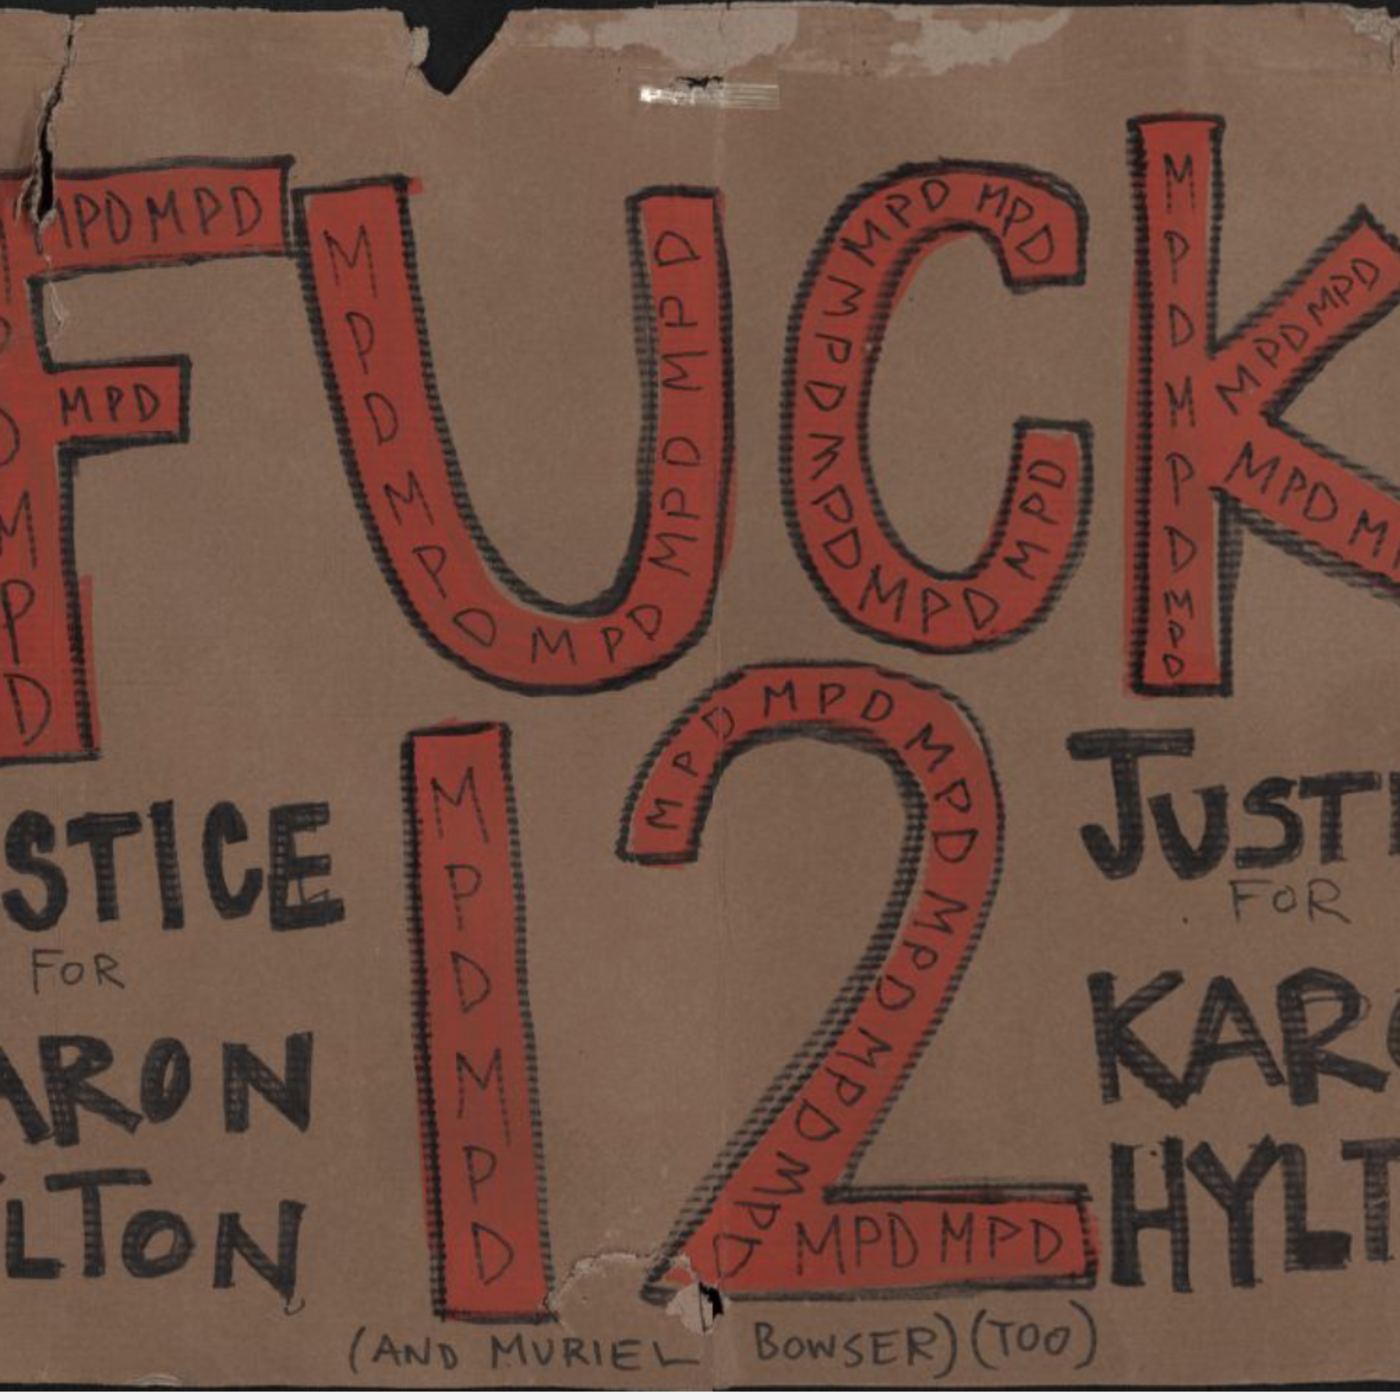 FUCK
12
MPD MPD
MPD
MPD MPD MPD MPD MPD MPD
MPD MPD MPD MPD MPD MPD
MPD MPD MPD
MPD MPD
MPD
MPD MPD
MPD MPD MPD MPD MPD MPD MPD
MPD MPD
STICE
FOR
ARON
LTON
JUSTI
FOR
KARO
HYLT
(AND MURIEL BOWSER) (TOO)